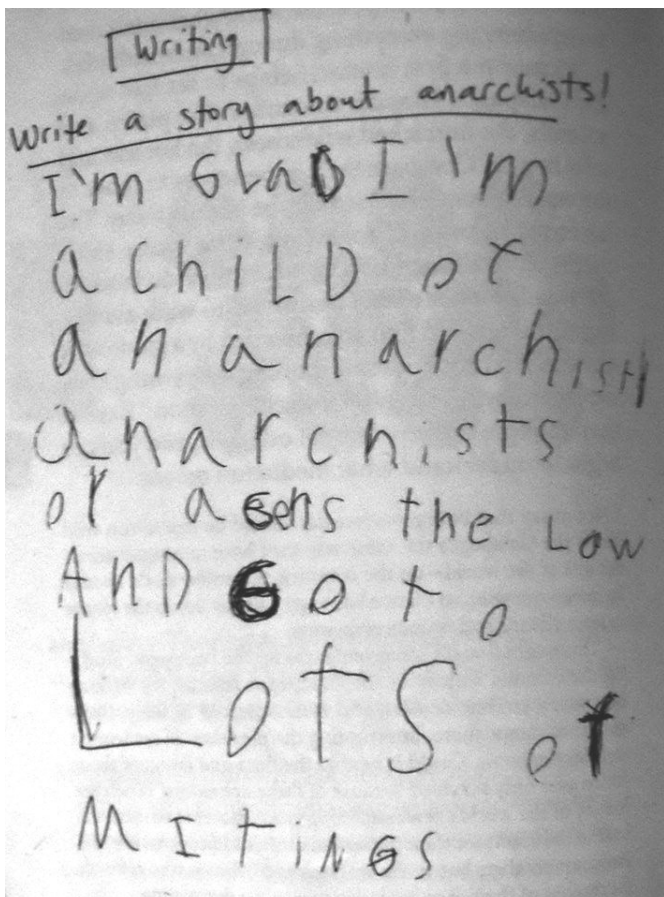 Writing
Write a story about anarchists!
I'm GLaD I'm
a ChiLD of
an anarchist
anarchists
or aGens the Low
AnD Go to
LotS of
MitinGs